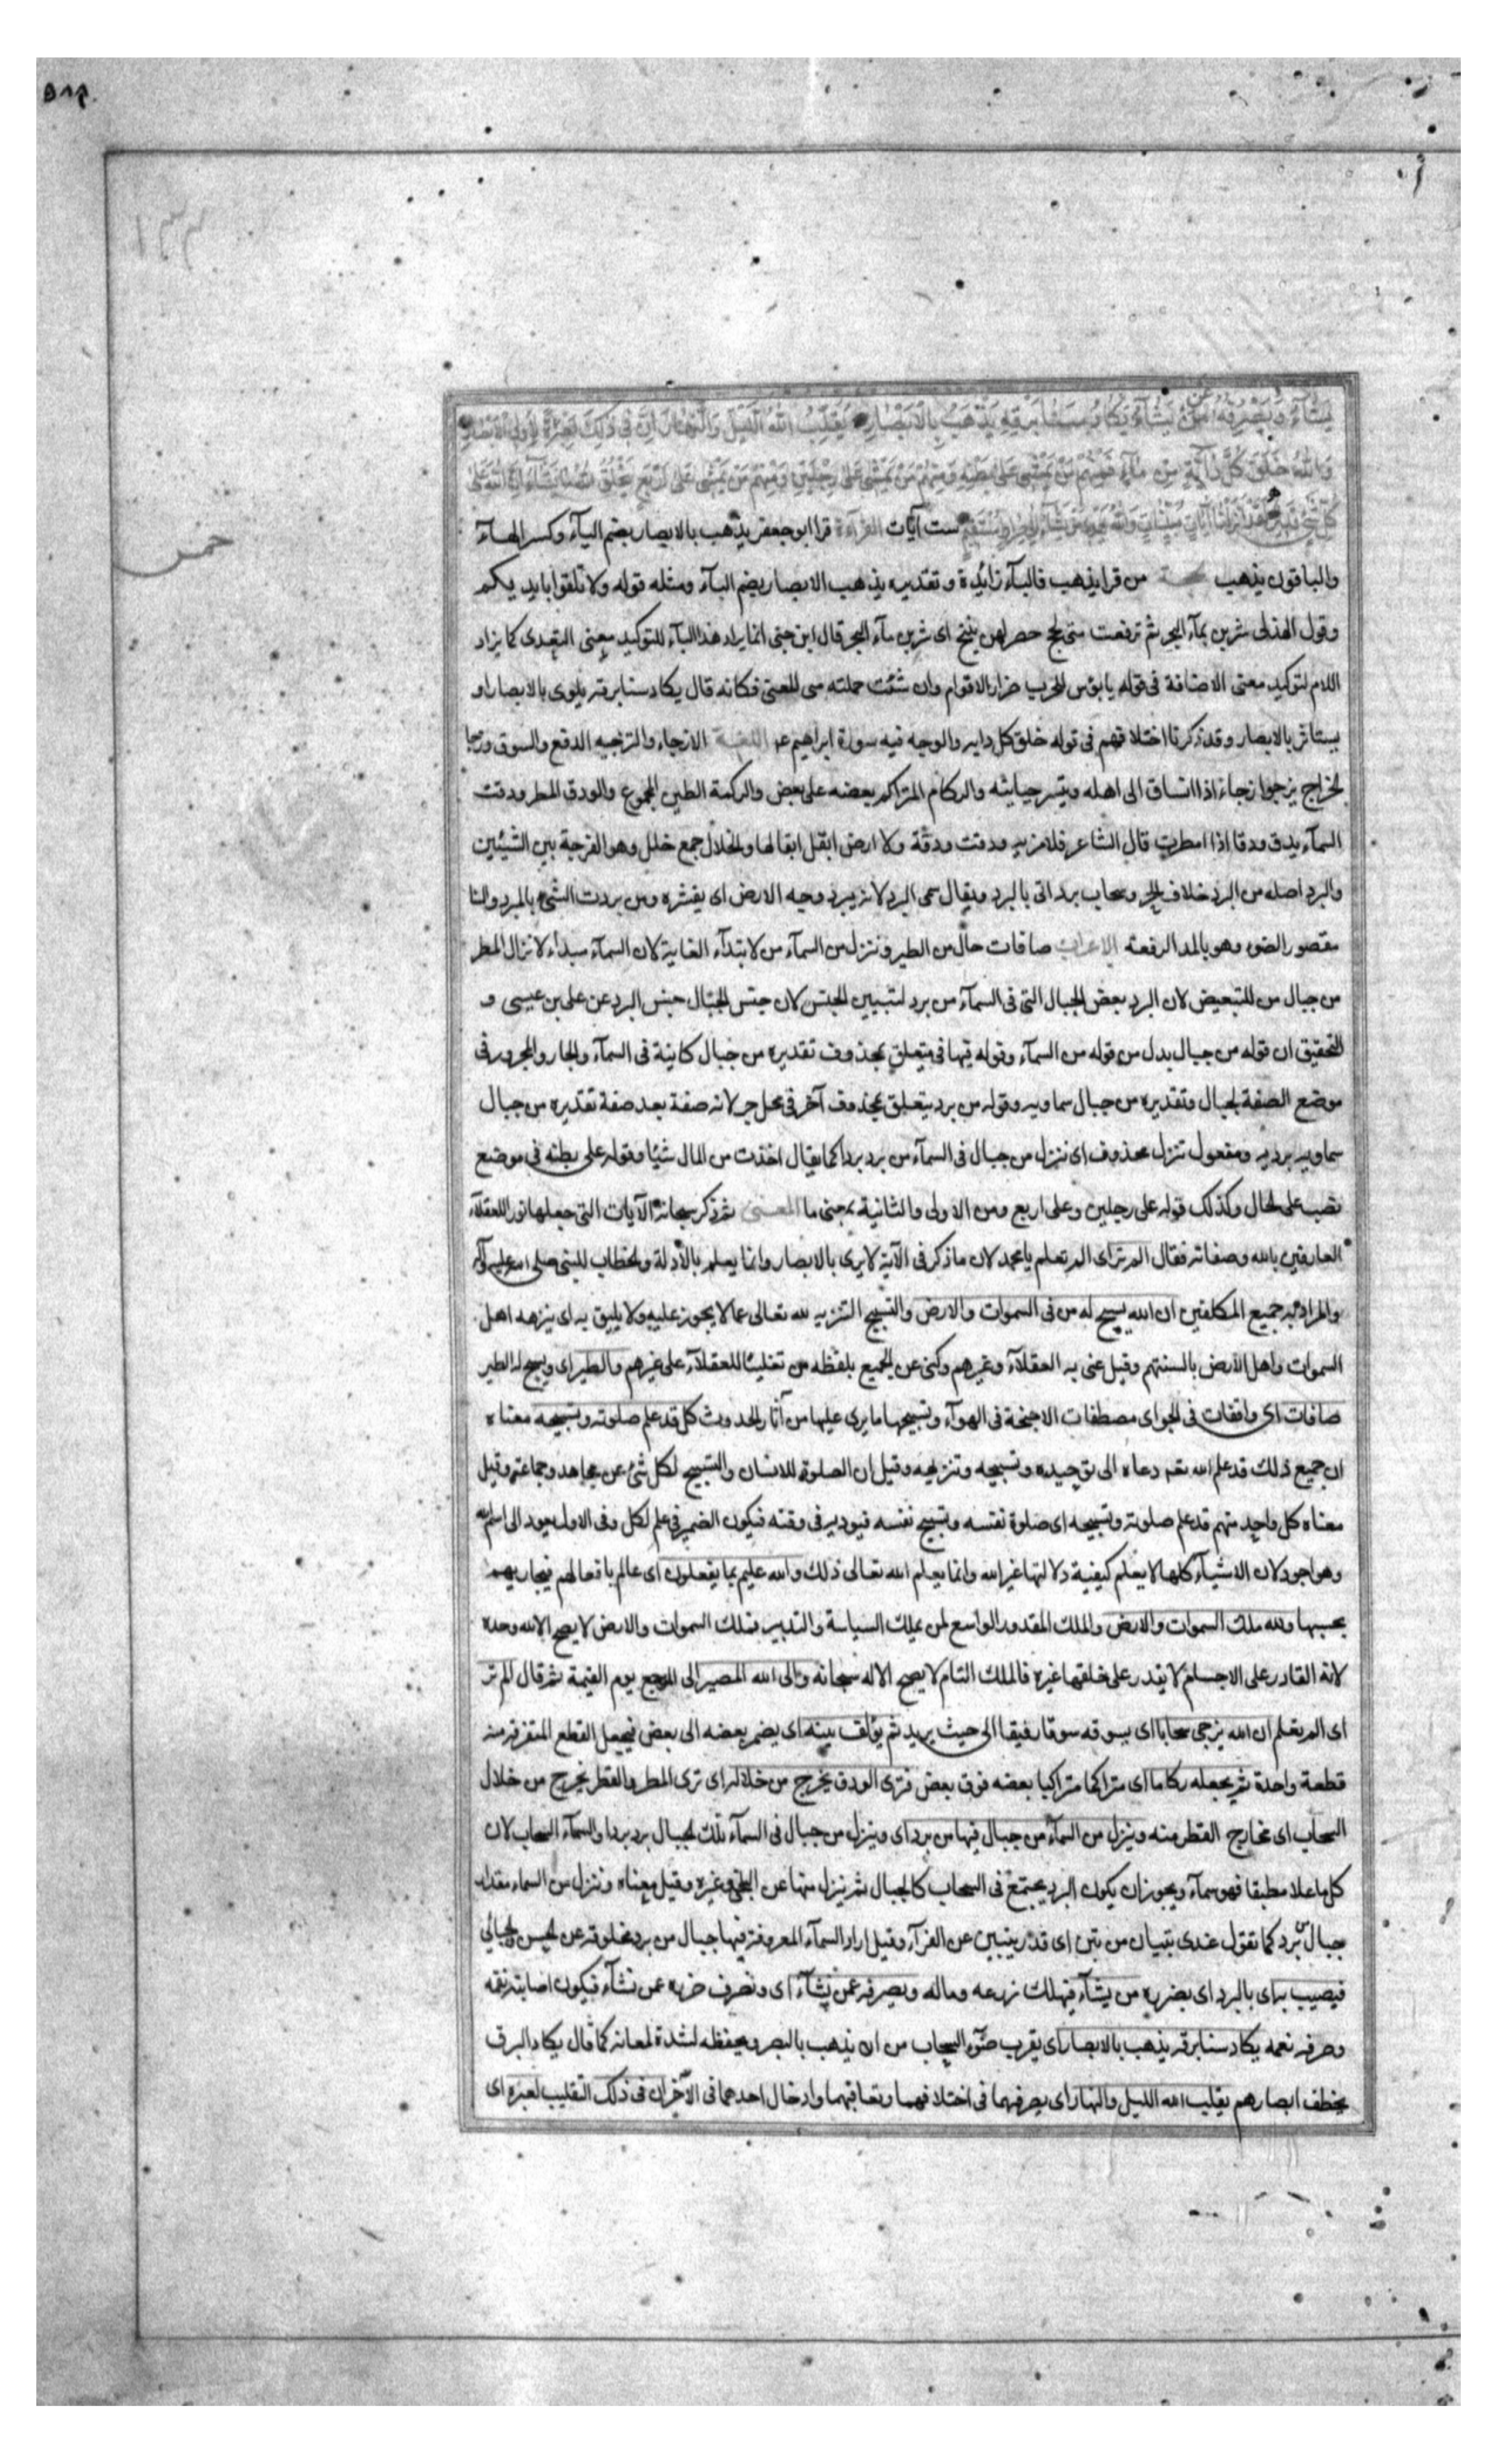 ٥٨٢
يَشَآءُ وَيَصْرِفُهُ عَنْ مَنْ يَشَآءُ يَكَادُ سَنَا بَرْقِهِ يَذْهَبُ بِالْاَبْصَارِ يُقَلِّبُ اللهُ اللَّيْلَ وَالنَّهَارَ اِنَّ فِى ذٰلِكَ لَعِبْرَةً لِاُولِى الْاَبْصَارِ
وَاللهُ خَلَقَ كُلَّ دَآبَّةٍ مِنْ مَآءٍ فَمِنْهُمْ مَنْ يَمْشِى عَلَى بَطْنِهِ وَمِنْهُمْ مَنْ يَمْشِى عَلَى رِجْلَيْنِ وَمِنْهُمْ مَنْ يَمْشِى عَلَى اَرْبَعٍ يَخْلُقُ اللهُ مَا يَشَآءُ اِنَّ اللهَ عَلَى
كُلِّ شَىْءٍ قَدِيرٌ لَقَدْ اَنْزَلْنَا آيَاتٍ مُبَيِّنَاتٍ وَاللهُ يَهْدِى مَنْ يَشَآءُ اِلَى صِرَاطٍ مُسْتَقِيمٍ ست آيات القرآءة قرا ابو جعفر يذهب بالابصار بضم اليآء وكسر الهآء
خمس
والباقون يذهب الحجة من قرا يذهب فالبآء زائدة وتقديره يذهب الابصار بضم اليآء ومثله قوله ولا تلقوا بايديكم
وقول الهذلى شربن بمآء البحر ثم ترفعت متى لجج خضر لهن نئيج اى شربن مآء البحر قال ابن جنى انما يراد هذا البآء للتوكيد معنى التعدى كما يزاد
اللام لتوكيد معنى الاضافة فى قوله يا بؤس للحرب ضرار الاقوام وان شئت حملته على المعنى فكانه قال يكاد سنا برقه يلوى بالابصار او
يستاثر بالابصار وقد ذكرنا اختلافهم فى قوله خلق كل دابه والوجه فيه سورة ابراهيم عم اللغة الازجاء والتزجيه الدفع والسوق وزجا
الخراج يزجوا زجاء اذا انساق الى اهله وتيسر جبايته والركام المتراكم بعضه على بعض والركمة الطين المجموع والودق المطر ودقت
السمآء يدق ودقا اذا امطرت قال الشاعر فلا مزنه ودقت ودقة ولا ارض ابقل ابقالها والخلال جمع خلل وهو الفرجة بين الشيئين
والبرد اصله من البرد خلاف الحر وسحاب برد اتى بالبرد ويقال سمى البرد لانه يبرد وجه الارض اى يقشره ومن بردت الشىء بالمبرد والسنا
مقصور الضوء وهو بالمد الرفعة الاعراب صافات حال من الطير وننزل من السمآء من لابتدآء الغاية لان السمآء مبداء لانزال المطر
من جبال من للتبعيض لان البرد بعض الجبال التى فى السمآء من برد لتبيين الجنس لان جنس الجبال جنس البرد عن على بن عيسى و
التحقيق ان قوله من جبال بدل من قوله من السمآء وقوله فيها فى يتعلق بمحذوف تقديره من جبال كاينة فى السمآء والجار والمجرور فى
موضع الصفة لجبال وتقديره من جبال سماويه وقوله من برد يتعلق بمحذوف آخر فى محل جر لانه صفة بعد صفة تقديره من جبال
سماويه برديه ومفعول ننزل محذوف اى ننزل من جبال فى السمآء من برد بردا كما يقال اخذت من المال شيئا وقوله على بطنه فى موضع
نصب على الحال وكذلك قوله على رجلين وعلى اربع ومن الاولى والثانية بمعنى ما المعنى ثم ذكر سبحانه الآيات التى جعلها نورا للعقلآء
العارفين بالله وصفاته فقال الم تر اى الم تعلم يا محمد لان ما ذكر فى الآية لا يرى بالابصار وانما يعلم بالادلة والخطاب للنبى صلى الله عليه وآله
والمراد به جميع المكلفين ان الله يسبح له من فى السموات والارض والتسبيح التنزيه لله تعالى عما لا يجوز عليه ولا يليق به اى ينزهه اهل
السموات واهل الارض بالسنتهم وقيل عنى به العقلآء وغيرهم وكنى عن الجميع بلفظه من تغليبًا للعقلآء على غيرهم والطير اى ويسبح له الطير
صافات اى واقفات فى الجو اى مصطفات الاجنحة فى الهوآء وتسبيحها ما يرى عليها من آثار الحدوث كل قد علم صلوته وتسبيحه معناه
ان جميع ذلك قد علم الله تعم دعاه الى توحيده وتسبيحه وتنزيهه وقيل ان الصلوة للانسان والتسبيح لكل شىء عن مجاهد وجماعة وقيل
معناه كل واحد منهم قد علم صلوته وتسبيحه اى صلوة نفسه وتسبيح نفسه فيوديه فى وقته فيكون الضمير فى علم لكل وفى الاول يعود الى اسم الله
وهو اجود لان الاشيآء كلها لا يعلم كيفية دلالتها غير الله وانما يعلم الله تعالى ذلك والله عليم بما يفعلون اى عالم بافعالهم فيجازيهم
بحسبها ولله ملك السموات والارض والملك المقدور الواسع لمن يملك السياسة والتدبير فملك السموات والارض لا يصح الا لله وحده
لانه القادر على الاجسام لا يقدر على خلقها غيره فالملك التام لا يصح الا له سبحانه والى الله المصير اى المرجع يوم القيمة ثم قال الم تر
اى الم تعلم ان الله يزجى سحابا اى يسوقه سوقا رفيقا الى حيث يريد ثم يؤلف بينه اى يضم بعضه الى بعض فيجعل القطع المتفرقه منه
قطعة واحدة ثم يجعله ركاما اى متراكما متراكبا بعضه فوق بعض فترى الودق يخرج من خلاله اى ترى المطر والقطر يخرج من خلال
السحاب اى مخارج القطر منه وينزل من السمآء من جبال فيها من برد اى وينزل من جبال فى السمآء تلك الجبال برد بردا والسمآء السحاب لان
كل ما علا مطبقا فهو سمآء ويجوز ان يكون البرد يجتمع فى السحاب كالجبال ثم ينزل منها عن البلخى وغيره وقيل معناه وننزل من السماء مقدار
جبال من برد كما تقول عندى بتيان من تبن اى قدر بيتين عن الفرآء وقيل اراد السمآء المعروفة فيها جبال من برد مخلوقة عن الحسن والجبائى
فيصيب به اى بالبرد اى بضرره من يشآء فيهلك زرعه وماله ويصرفه عن من يشآء اى ونصرف ضرره عمن نشآء فيكون اصابته نقمه
وصرفه نعمه يكاد سنا برقه يذهب بالابصار اى يقرب ضوء السحاب من ان يذهب بالبصر ويخطفه لشدة لمعانه كما قال يكاد البرق
يخطف ابصارهم يقلب الله الليل والنهار اى يصرفهما فى اختلافهما وتعاقبهما وادخال احدهما فى الآخر ان فى ذلك التقليب لعبرة اى